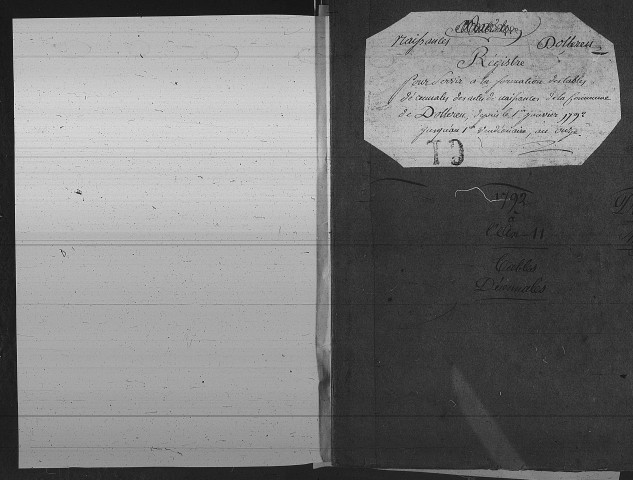 Naissances Dolleren
Régistre
Pour servir a la formation des tables
décennales des actes de naissances de la Commune
de Dolleren, depuis le 1er janvier 1792
jusqu'au 1er Vendémiaire, an onze
TD
1792
à
Tables
Décennales